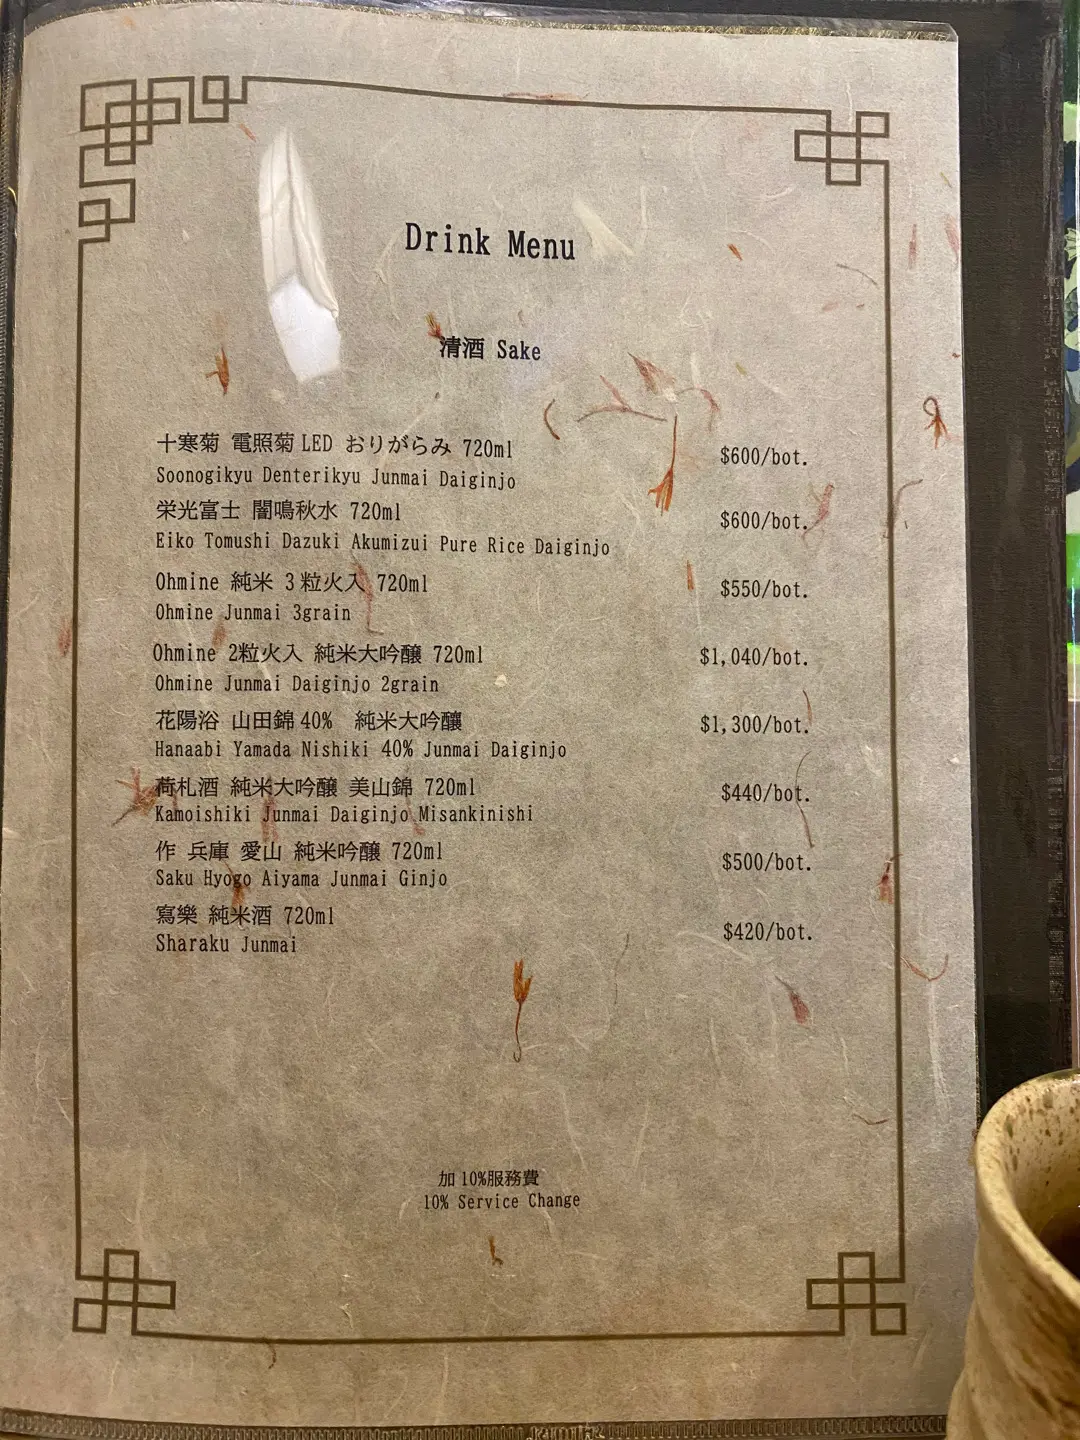 Drink Menu
清酒 Sake
十寒菊 電照菊LED おりがらみ 720ml $600/bot.
Soonogikyu Denterikyu Junmai Daiginjo
栄光富士 闇鳴秋水 720ml $600/bot.
Eiko Tomushi Dazuki Akumizui Pure Rice Daiginjo
Ohmine 純米 3粒火入 720ml $550/bot.
Ohmine Junmai 3grain
Ohmine 2粒火入 純米大吟醸 720ml $1,040/bot.
Ohmine Junmai Daiginjo 2grain
花陽浴 山田錦40% 純米大吟釀 $1,300/bot.
Hanaabi Yamada Nishiki 40% Junmai Daiginjo
荷札酒 純米大吟醸 美山錦 720ml $440/bot.
Kamoishiki Junmai Daiginjo Misankinishi
作 兵庫 愛山 純米吟醸 720ml $500/bot.
Saku Hyogo Aiyama Junmai Ginjo
寫樂 純米酒 720ml $420/bot.
Sharaku Junmai
加10%服務費
10% Service Change